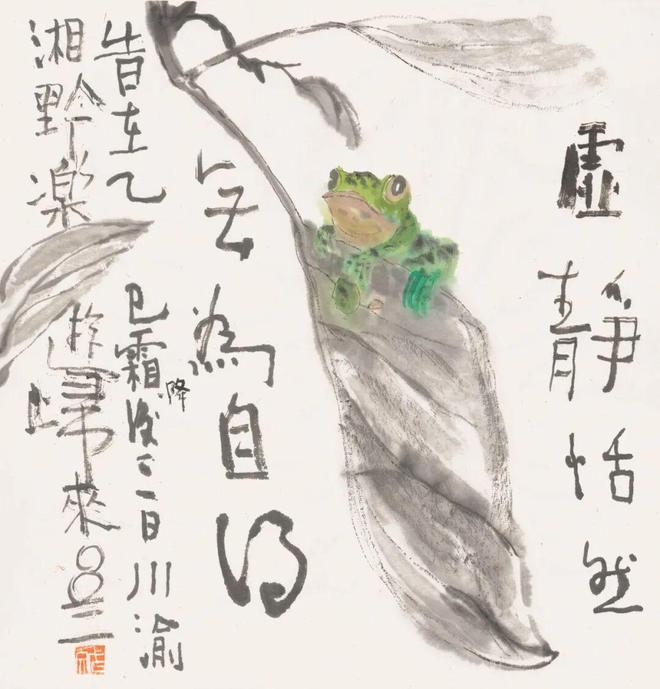 虛靜恬然
無為自得
旹在乙巳霜降後日川渝
湘黔楽遊歸來